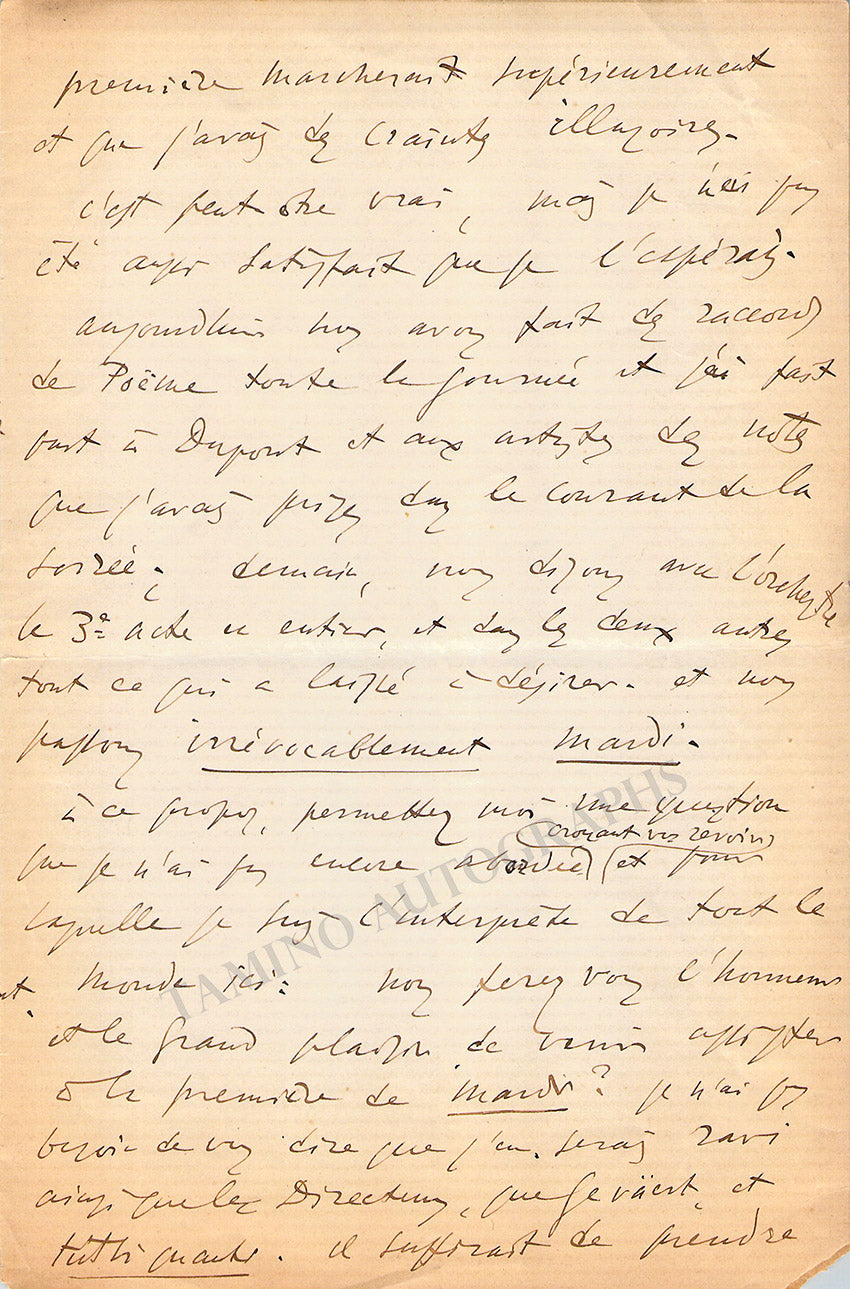 première marcherait supérieurement
et que j'avais des craintes illusoires.
c'est peut être vrai, mais je n'ai pas
été aussi satisfait que je l'espérais.
aujourdhui nous avons fait des raccords
de Poëme toute la journée et j'ai fait
part à Dupont et aux artistes des notes
que j'avais prises dans le courant de la
soirée; demain, nous disons avec l'orchestre
le 3e acte en entier, et dans les deux autres
tout ce qui a laissé à désirer. et nous
passons irrévocablement mardi.
à ce propos, permettez moi une question
croyant vous revoir
que je n'ai pas encore abordée et pour
laquelle je suis l'interprète de tout le
monde ici: nous ferez vous l'honneur
et le grand plaisir de venir assister
à la première de mardi? je n'ai pas
besoin de vous dire que j'en serais ravi
ainsi que les Directeurs, que Gevaërt, et
tutti quanti. il suffirait de prendre
TAMINO AUTOGRAPHS